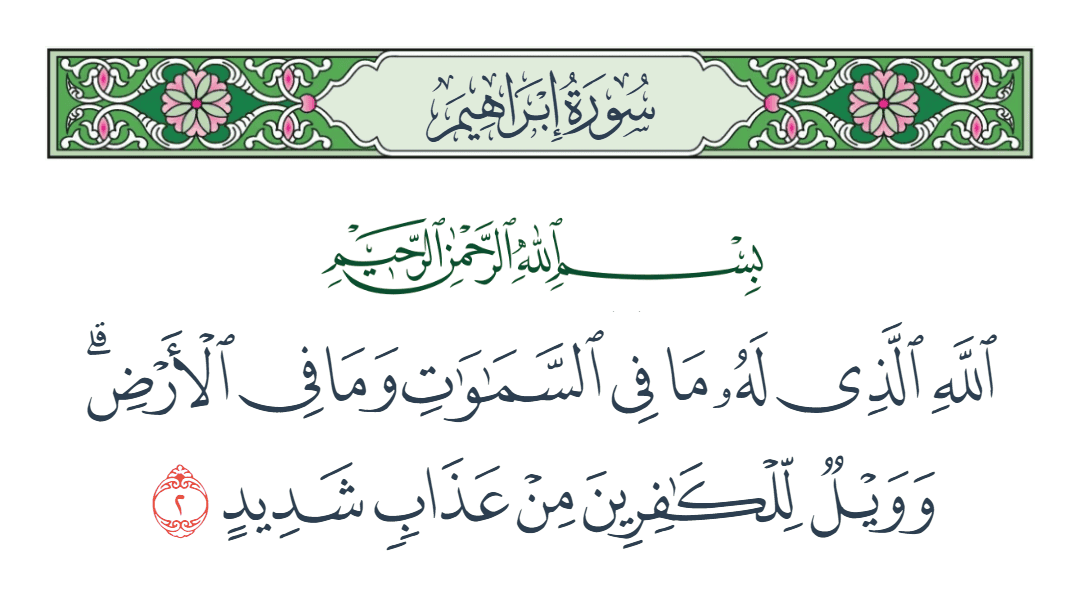 سُورَةُ إِبْرَاهِيمَ
بِسْمِ ٱللَّهِ ٱلرَّحْمَٰنِ ٱلرَّحِيمِ
ٱللَّهِ ٱلَّذِى لَهُۥ مَا فِى ٱلسَّمَٰوَٰتِ وَمَا فِى ٱلْأَرْضِ ۗ
وَوَيْلٌ لِّلْكَٰفِرِينَ مِنْ عَذَابٍ شَدِيدٍ ٢